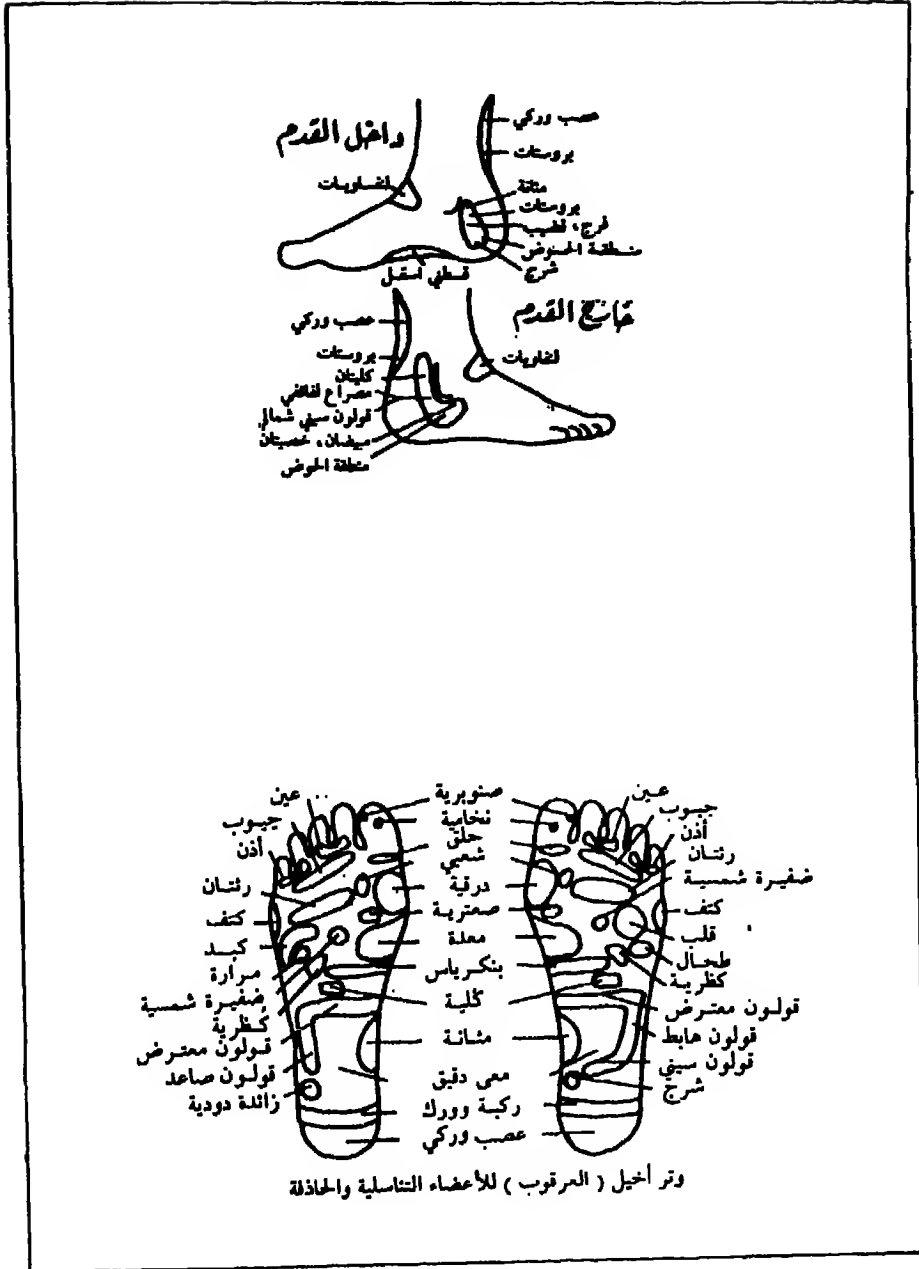 داخل القدم
عصب وركي
بروستات
لمفاويات
مثانة
بروستات
فرج، قضيب
منطقة الحوض
شرج
قطني أسفل
خارج القدم
عصب وركي
بروستات
لمفاويات
كليتان
مصراع لفائفي
قولون سيني شمالي
مبيضان، خصيتان
منطقة الحوض
عين
جيوب
أذن
رئتان
كتف
كبد
مرارة
ضفيرة شمسية
كظرية
قولون معترض
قولون صاعد
زائدة دودية
صنوبرية
نخامية
حلق
شعبي
درقية
صعترية
معدة
بنكرياس
كلية
مثانة
معى دقيق
ركبة وورك
عصب وركي
عين
جيوب
أذن
رئتان
ضفيرة شمسية
كتف
قلب
طحال
كظرية
قولون معترض
قولون هابط
قولون سيني
شرج
وتر أخيل ( العرقوب ) للأعضاء التناسلية والحاذلة